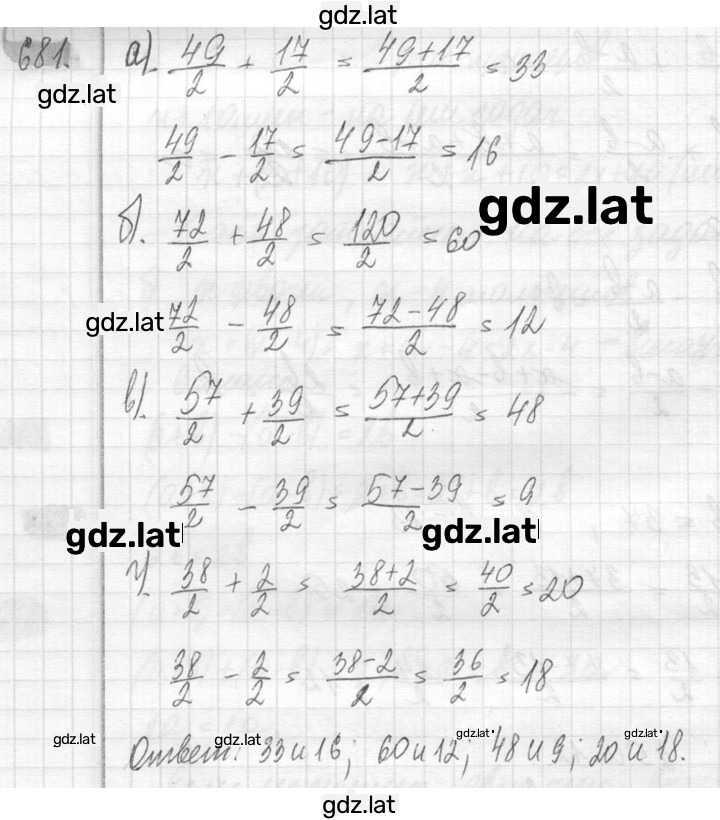 gdz.lat
681. а). 49/2 + 17/2 = (49+17)/2 = 33
gdz.lat
49/2 - 17/2 = (49-17)/2 = 16
gdz.lat
б). 72/2 + 48/2 = 120/2 = 60
gdz.lat
72/2 - 48/2 = (72-48)/2 = 12
в). 57/2 + 39/2 = (57+39)/2 = 48
57/2 - 39/2 = (57-39)/2 = 9
gdz.lat gdz.lat
г). 38/2 + 2/2 = (38+2)/2 = 40/2 = 20
38/2 - 2/2 = (38-2)/2 = 36/2 = 18
gdz.lat gdz.lat gdz.lat gdz.lat
Ответ: 33 и 16; 60 и 12; 48 и 9; 20 и 18.
gdz.lat